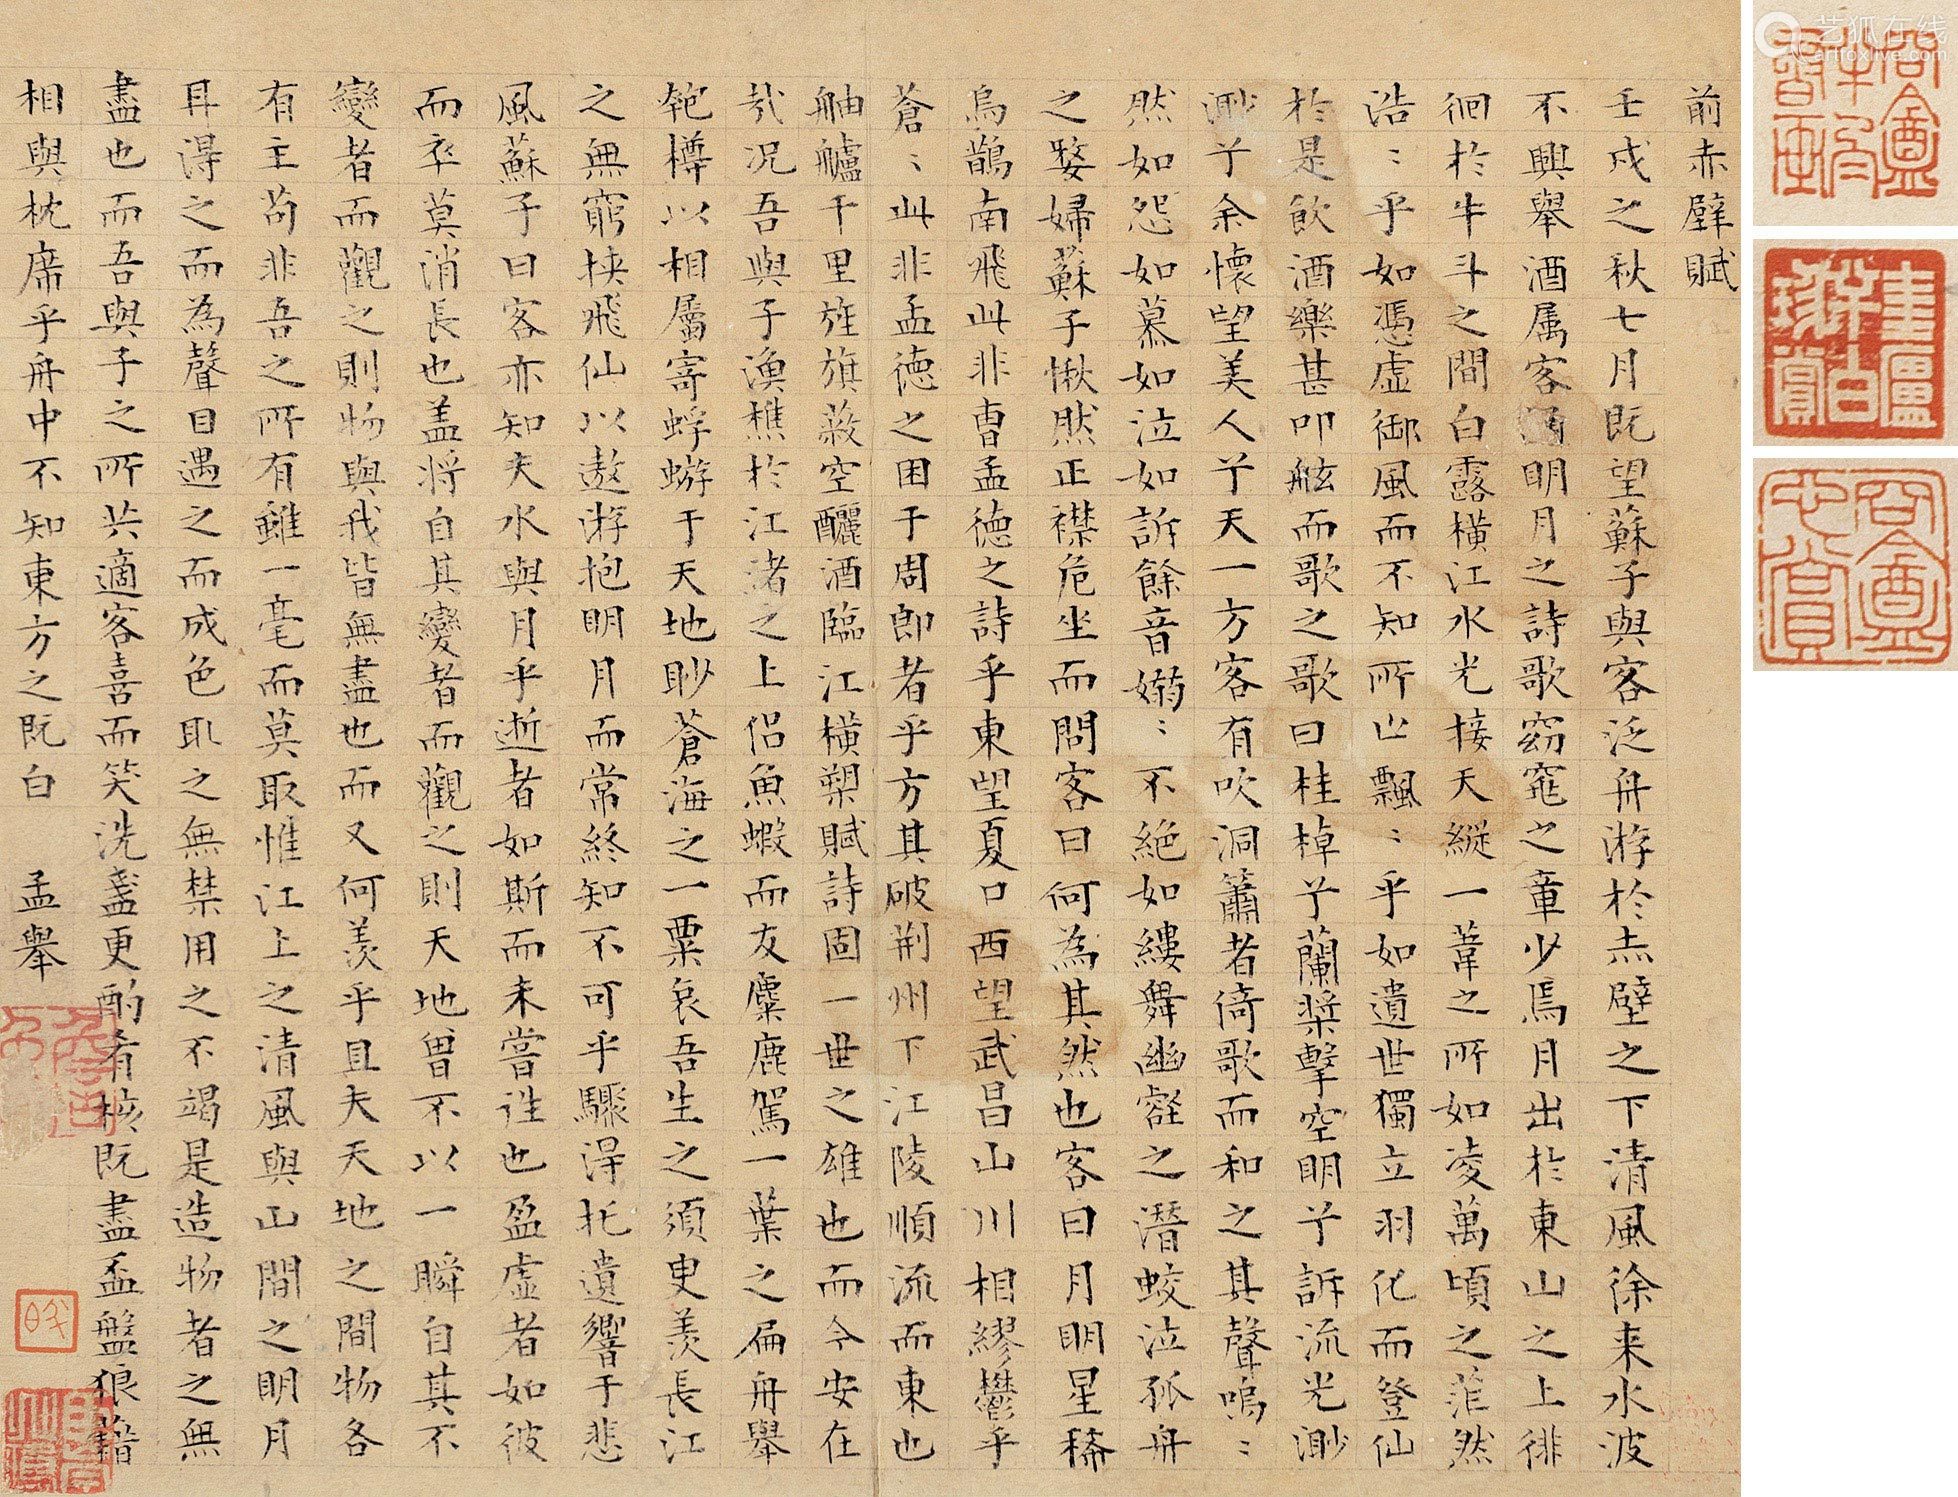 前赤壁賦
壬戌之秋七月既望蘇子與客泛舟游於赤壁之下清風徐来水波
不興舉酒属客誦明月之詩歌窈窕之章少焉月出於東山之上徘
徊於牛斗之間白露横江水光接天縱一葦之所如凌萬頃之茫然
浩〻乎如馮虚御風而不知所止飄〻乎如遺世獨立羽化而登仙
於是飲酒樂甚叩舷而歌之歌曰桂棹兮蘭槳擊空明兮訴流光渺
渺兮余懷望美人兮天一方客有吹洞簫者倚歌而和之其聲嗚〻
然如怨如慕如泣如訴餘音嫋〻不絶如縷舞幽壑之潛蛟泣孤舟
之嫠婦蘇子愀然正襟危坐而問客曰何為其然也客曰月明星稀
烏鵲南飛此非曹孟德之詩乎東望夏口西望武昌山川相繆鬱乎
蒼〻此非孟德之困于周郎者乎方其破荆州下江陵順流而東也
舳艫千里旌旗蔽空釃酒臨江横槊賦詩固一世之雄也而今安在
哉况吾與子漁樵於江渚之上侣魚蝦而友麋鹿駕一葉之扁舟舉
匏樽以相屬寄蜉蝣于天地眇蒼海之一粟哀吾生之須臾羡長江
之無窮挟飛仙以遨游抱明月而常終知不可乎驟得托遺響于悲
風蘇子曰客亦知夫水與月乎逝者如斯而未嘗往也盈虚者如彼
而卒莫消長也盖將自其變者而觀之則天地曾不以一瞬自其不
變者而觀之則物與我皆無盡也而又何羡乎且夫天地之間物各
有主苟非吾之所有雖一毫而莫取惟江上之清風與山間之明月
耳得之而為聲目遇之而成色取之無禁用之不竭是造物者之無
盡也而吾與子之所共適客喜而笑洗盞更酌肴核既盡盃盤狼藉
相與枕席乎舟中不知東方之既白 孟舉
艺狐在线
artfoxlive.com